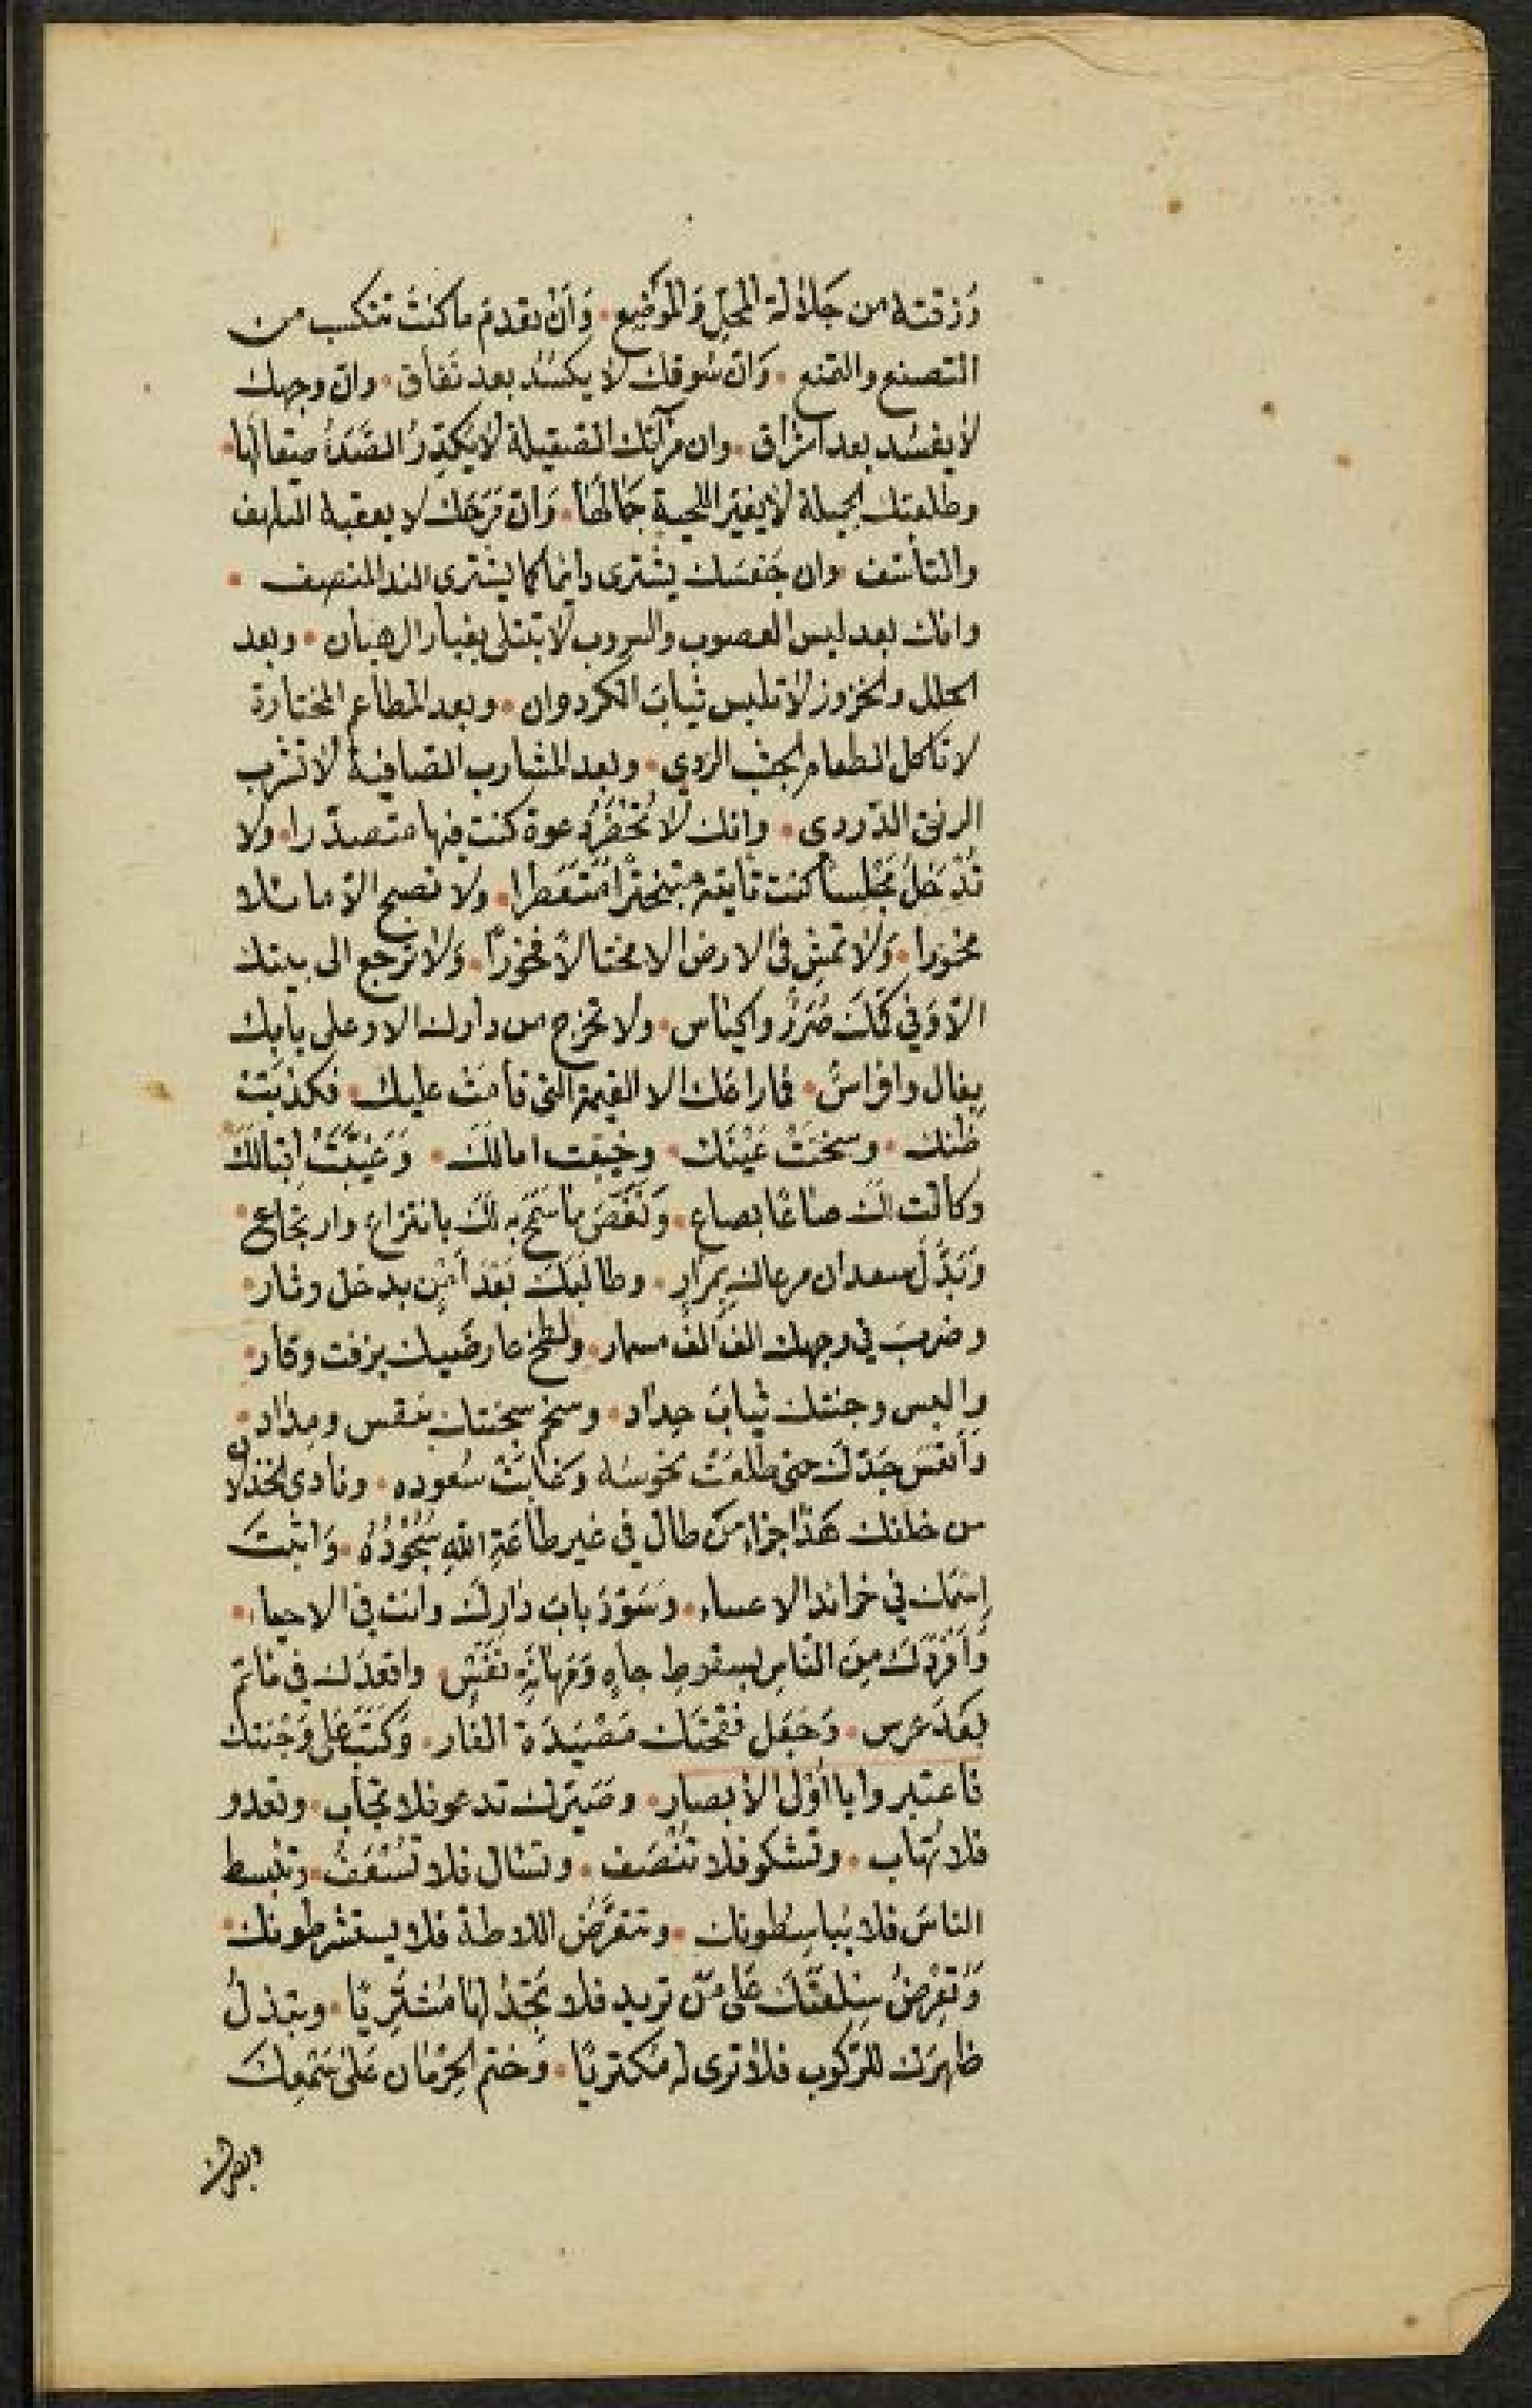 رُزقته من جَلَالة المحَلِّ وَالمَوضِع • وَاَنْ تعدم ما كنتَ تتكسب من
التصنع والتمنع • وَانّ سُوقك لا يكسُد بعد نَفَاق • وانّ وجهك
لا يفسُد بعد اشراق • وان مرآتك الصقيلة لا يُكدِّرُ الصَّدَأُ صقالها •
وطلعتك الجميلة لا يغيّر اللحية جمالها • وَانّ فرَحَك لا يعقبه التلهف
والتأسّف وان يشترى دائما كما يشترى الند المنصف •
وانك بعد لبس العصوب والسروب لا تبتلى بغبار الرهبان • وبعد
الحلل والخزوز لا تلبس ثيابَ • وبعد المطاعم المختارة
لا تاكل الطعام الجشب الردي • وبعد المشارب الصافية لا تشرب
الرنق الدّردى • وانك لا تحْضُرُ دعوة كنت فيها متصدّرا • ولا
تَدْخلُ مَجْلِسًا كنت تأتيه متبخترًا مُتَعَطرا • ولا تصبح الا ماثلا
مخمورا • وَلا تمشِ فى الارض الا مختالًا فخورًا • وَلا ترجع الى بيتك
الّا وَفي كُمّكَ صُرَرٌ واكياس • ولا تخرج من دارك الا وعلى بابك
بغال وافراسٌ • فما راعَك الا القيمة التى قامَتْ عليك • فكذبَت
ظنك • وسخنَتْ عَيْنَك • وخيّبت امالَكَ • وَغَيَّبَتْ اِقبَالَكَ •
وكالَت لك صَاعًا بصاع • وَنَغَّصَ مَا سَمَحَ به لَكَ بانتزاع وارتجاع •
وَبَدَّلَ سعدان مرعاك بِمرَارٍ • وطالَبَكَ بَعْدَ اَمْنٍ بدخل وثار •
وضربَ في وجهك الفَ الفِ مسمار • ولطّخ عارضَيك بزفت وقار •
والبس وجنتك ثيابَ حِداد • وسخّم سحنتك بنقس ومِداد •
وَاَتعَسَ جَدّكَ حتى طلعَتْ نحُوسُه وَغابَتْ سُعوده • ونادى الخذلان
من خلفك هَذا جزاء مَن طال في غير طاعَةِ اللهِ سُجُوْدُهُ • وَاثبتَ
اِسْمَك في جرائد الاعمياء • وسَوّدَ بابَ دَارِكَ وانت فى الاحياء •
وَاَفرَدَكَ مِنَ النَّاسِ بسقوطِ جاهٍ وَمَهانَةِ نَفْسٍ • واقعدَك فى مَاتم
بَعْدَ عرس • وَجَعَل فقحتَك مَصْيَدَة الفار • وَكتَبَ عَلى وَجْنَتك
فاعتبروا يا اُولِى الأبصار • وصَيّرك تدعو فلا تُجَاب • وتعدو
فلا تُهاب • وتشكو فلا تُنْصَف • وتسْال فلا تُسْعَفُ • وتبسط
الناسَ فلا يُباسِطونك • وتتعَرَّضُ اللاطة فلا يستشرطونك •
وَتَعْرِضُ سِلْعَتَكَ عَلى مَن تريد فلا تَجِدُ لها مُشْتَرِيًا • وتبذلُ
ظهرَك للرّكوب فلا ترى له مُكتريًا • وَختم الحِرْمَان عَلى سَمْعِكَ
وبصرك